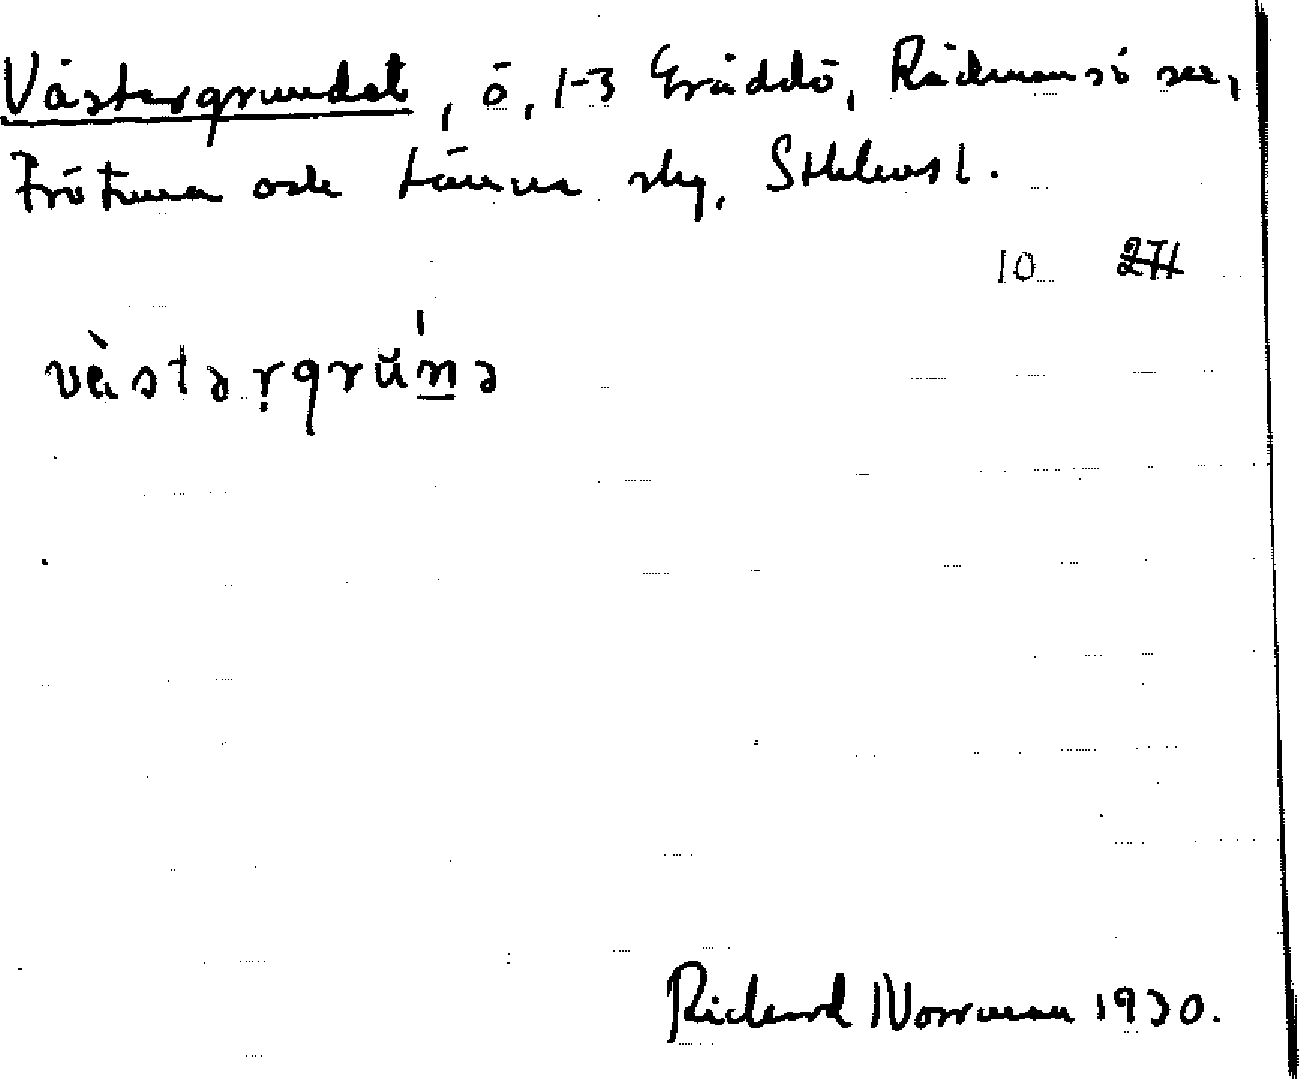 Västergrundet, ö, 1-3 Gräddö, Rådmansö sn,
Frötuna och Länna skg, Sthlms l.
10 271
vä̀stərgrŭ́nə
Rickard Norrman 1930.